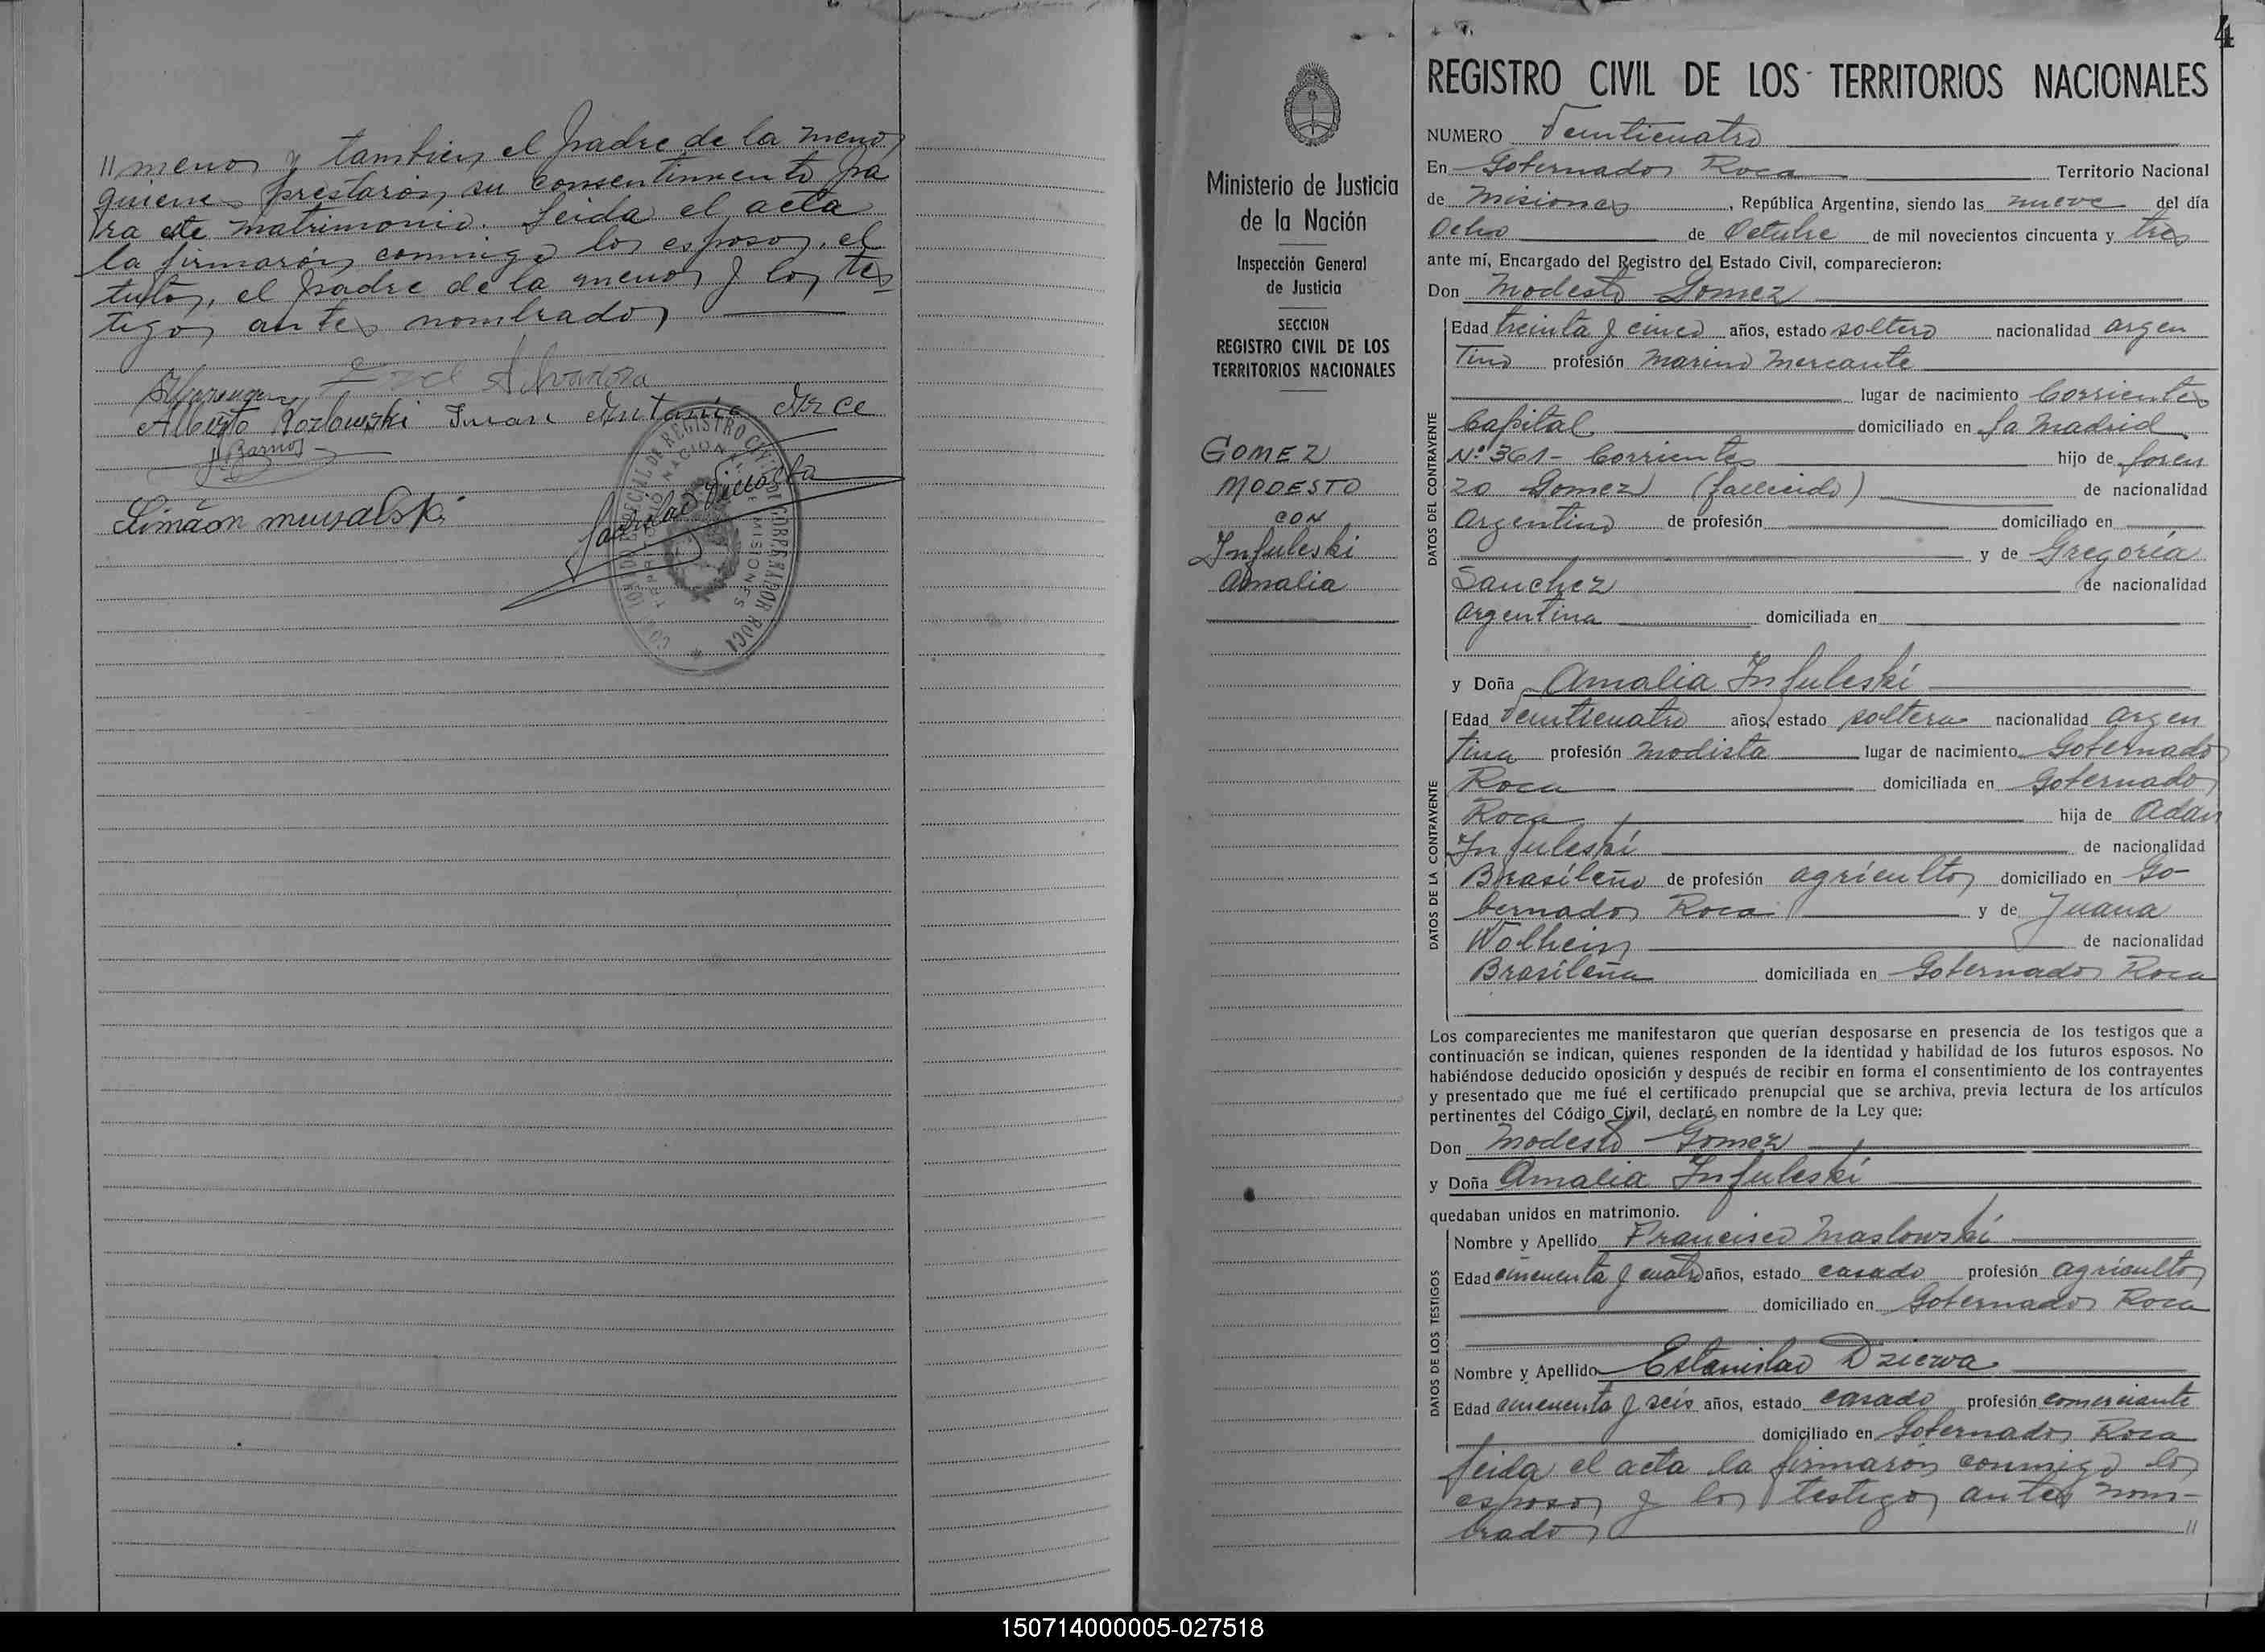 // menor y tambien el padre de la menor
quienes prestaron su consentimiento pa
ra este matrimonio. Leida el acta
la firmaron conmigo los esposos, el
tutor, el padre de la menor y los tes
tigos antes nombrados
Alberto Kozlowski Juan Antonio Arce
Ramos
4
REGISTRO CIVIL DE LOS TERRITORIOS NACIONALES
Ministerio de Justicia
de la Nación
Inspección General
de Justicia
SECCION
REGISTRO CIVIL DE LOS
TERRITORIOS NACIONALES
GOMEZ
MODESTO
CON
Infuleski
Amalia
NUMERO Veinticuatro
En Gobernador Roca Territorio Nacional
de Misiones, República Argentina, siendo las nueve del día
Ocho de Octubre de mil novecientos cincuenta y tres
ante mí, Encargado del Registro del Estado Civil, comparecieron:
Don Modesto Gomez
DATOS DEL CONTRAYENTE
Edad treinta y cinco años, estado soltero nacionalidad argen
tino profesión Marino Mercante
lugar de nacimiento Corrientes
Capital domiciliado en La Madrid
Nº 361- Corrientes hijo de Loren
zo Gomez (fallecido) de nacionalidad
Argentino de profesión domiciliado en
y de Gregoria
Sanchez de nacionalidad
argentina domiciliada en
y Doña Amalia Infuleski
DATOS DE LA CONTRAYENTE
Edad Veinticuatro años, estado soltera nacionalidad argen
tina profesión Modista lugar de nacimiento Gobernador
Roca domiciliada en Gobernador
Roca hija de Adan
Infuleski de nacionalidad
Brasileño de profesión agricultor domiciliado en Go-
bernador Roca y de Juana
Wolhein de nacionalidad
Brasileña domiciliada en Gobernador Roca
Los comparecientes me manifestaron que querían desposarse en presencia de los testigos que a
continuación se indican, quienes responden de la identidad y habilidad de los futuros esposos. No
habiéndose deducido oposición y después de recibir en forma el consentimiento de los contrayentes
y presentado que me fué el certificado prenupcial que se archiva, previa lectura de los artículos
pertinentes del Código Civil, declaré en nombre de la Ley que:
Don Modesto Gomez
y Doña Amalia Infuleski
quedaban unidos en matrimonio.
DATOS DE LOS TESTIGOS
Nombre y Apellido Francisco Maslowski
Edad cincuenta y cuatro años, estado casado profesión agricultor
domiciliado en Gobernador Roca
Nombre y Apellido Estanislao Dziewa
Edad cincuenta y seis años, estado casado profesión comerciante
domiciliado en Gobernador Roca
Leida el acta la firmaron conmigo los
esposos y los testigos antes nom-
brados //
150714000005-027518